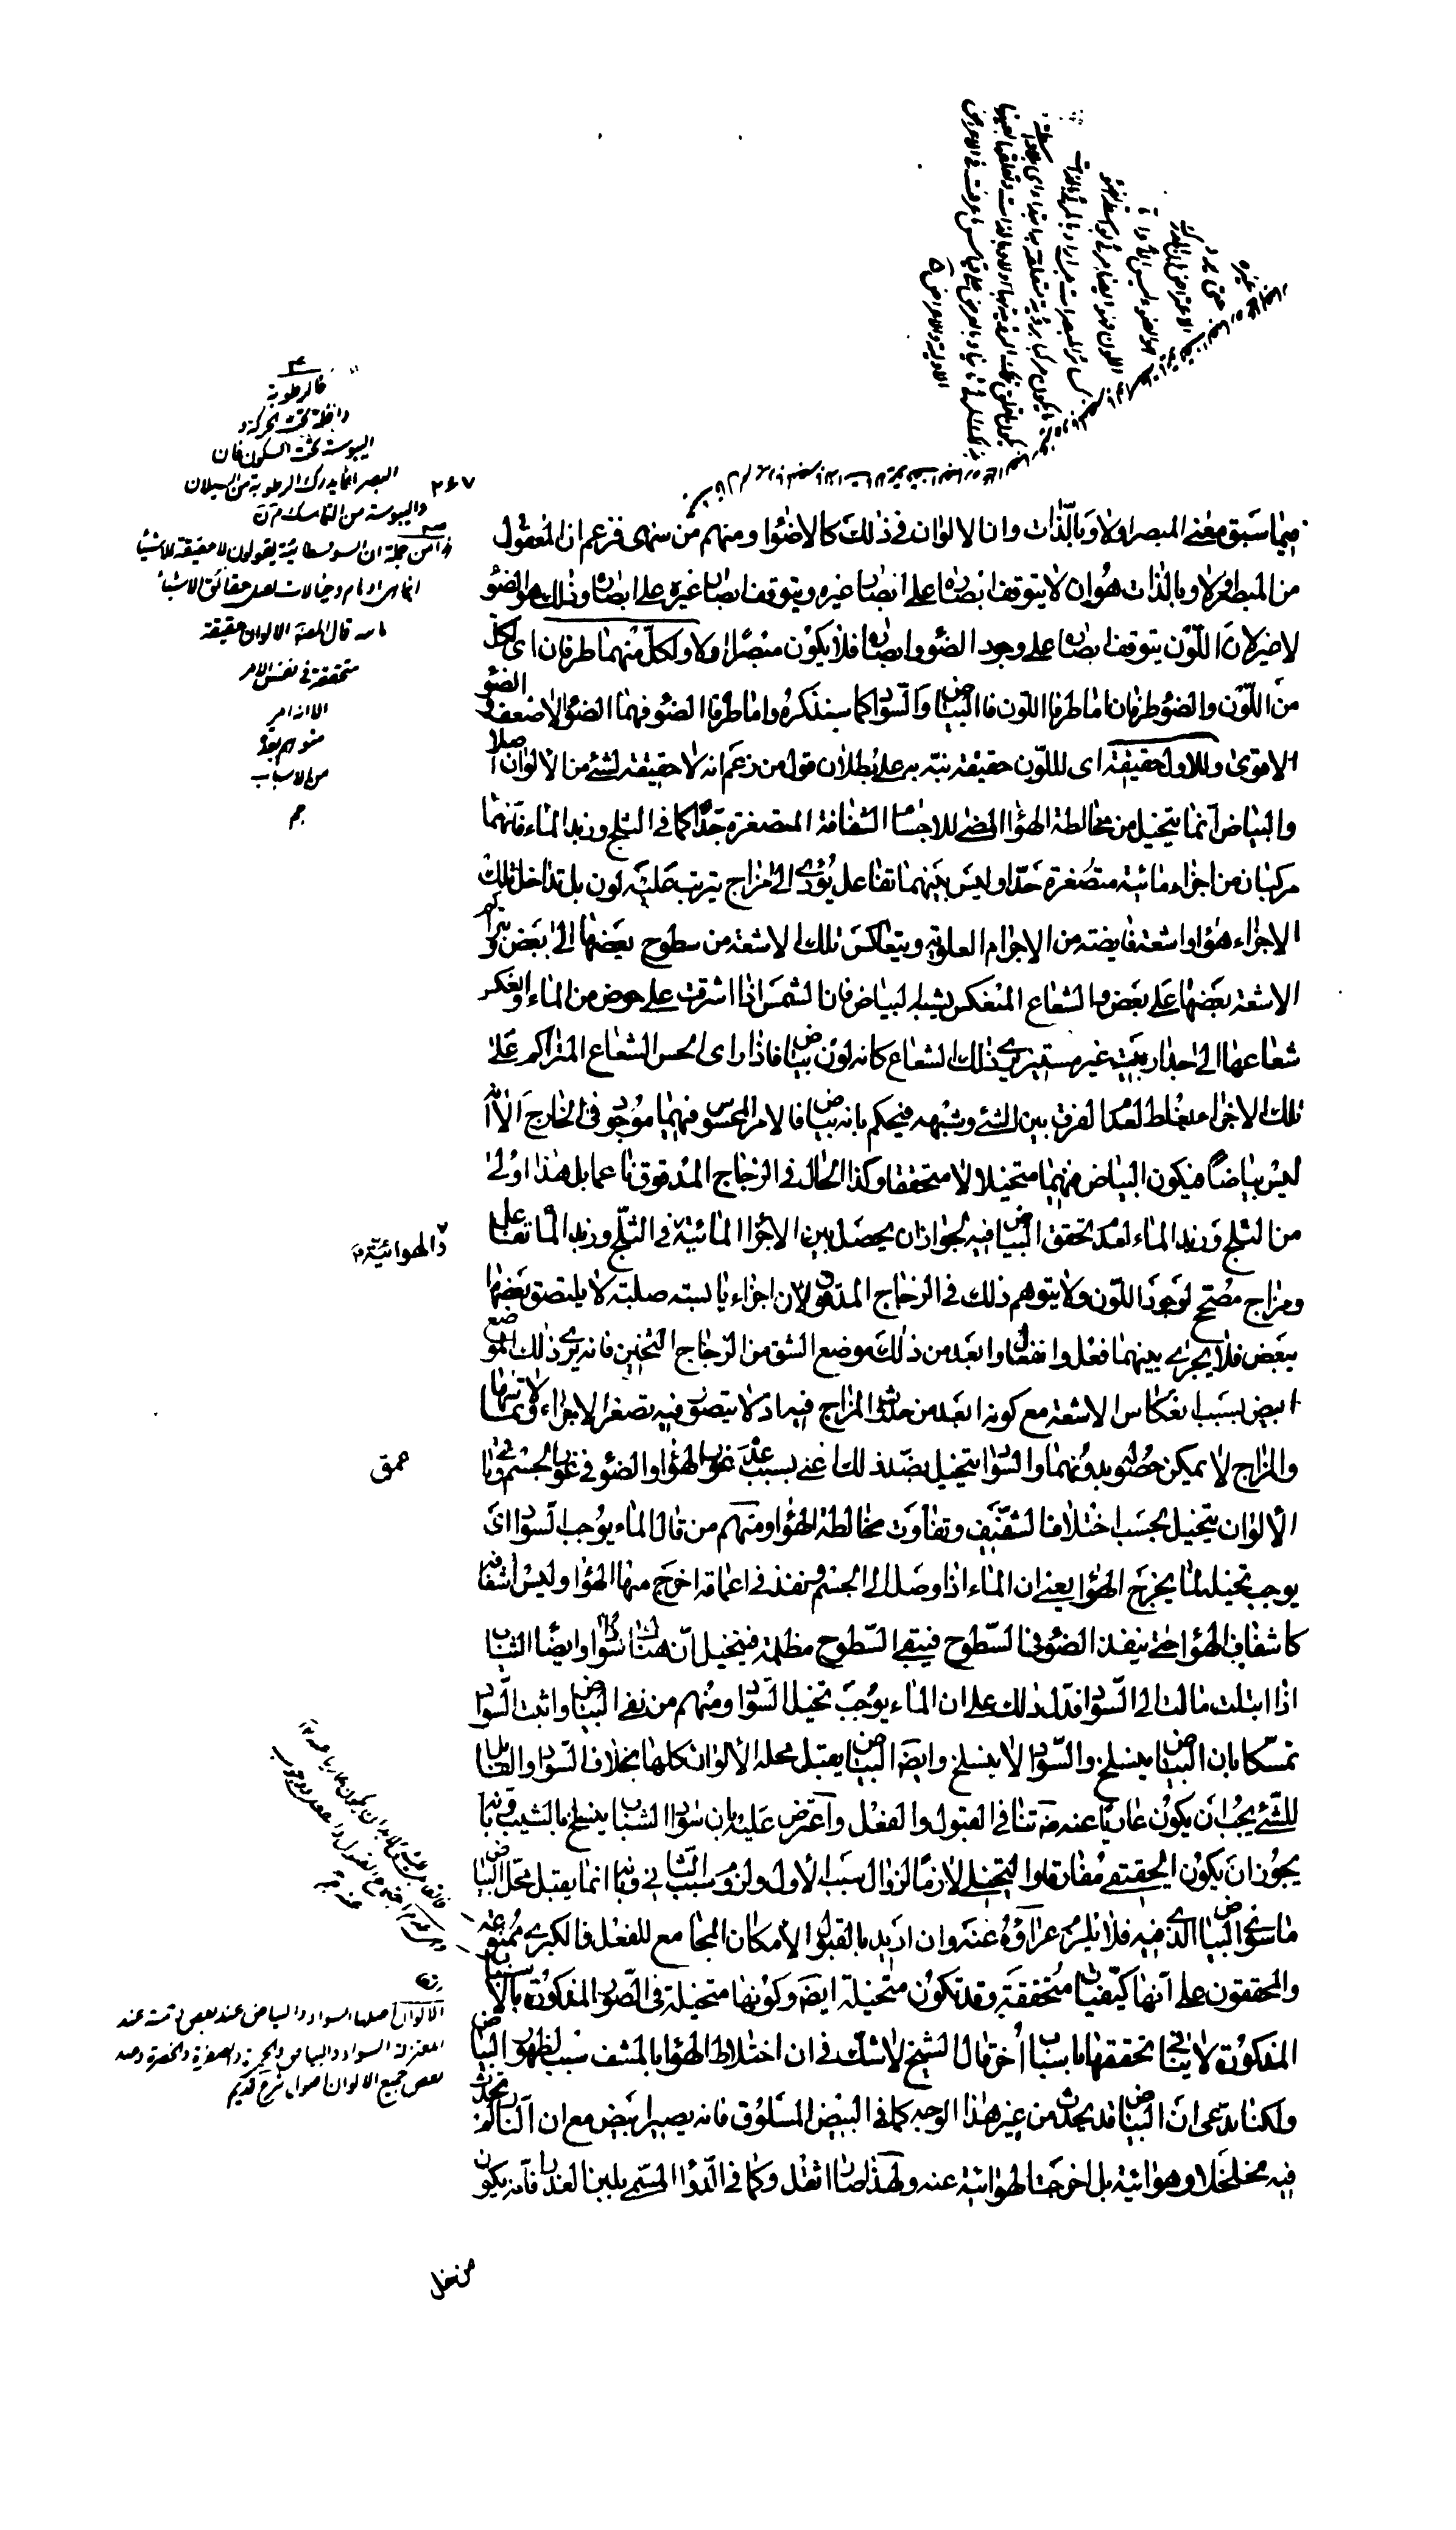 فيما سبق معنى المبصر اولا وبالذات وان الالوان في ذلك كالاضواء ومنهم من سهى فزعم ان المعقول
من المبصر اولا وبالذات هو ان لا يتوقف ابصاره على ابصار غيره ويتوقف ابصار غيره على ابصاره وذلك هو الضوء
لا غير لان اللون يتوقف ابصاره على وجود الضوء وابصاره فلا يكون مبصرا اولا ولكل منهما طرفان اى لكل
من اللون والضوء طرفان اما طرفا اللون فالبياض والسواد كما سنذكره واما طرفا الضوء فهما الضوء الاضعف والضوء
الاقوى وللاول حقيقة اى للون حقيقة نبه به على بطلان قول من زعم انه لا حقيقة لشئ من الالوان اصلا
والبياض انما يتخيل من مخالطة الهواء المضئ للاجسام الشفافة المتصغرة جدا كما في الثلج وزبد الماء فانهما
مركبان من اجزاء مائية متصغرة جدا وليس بينهما تفاعل يؤدى الى مزاج يترتب عليه لون بل تداخل تلك
الاجزاء هواء واشعة فايضة من الاجرام العلوية ويتعاكس تلك الاشعة من سطوح بعضها الى بعض ويتراكم
الاشعة بعضها على بعض والشعاع المنعكس يشبه البياض فان الشمس اذا اشرقت على حوض من الماء وانعكس
شعاعها الى جدار بيت غير مستنير يرى ذلك الشعاع كانه لون بياض فاذا راى الحس الشعاع المتراكم على
تلك الاجزاء فيغلط لعدم الفرق بين الشئ وشبهه فيحكم بانه بياض فالامر المحسوس فيهما موجود في الخارج الا انه
ليس بياضا فيكون البياض فيهما متخيلا لا متحققا وكذا الحال في الزجاج المدقوق ناعما بل هذا اولى
من الثلج وزبد الماء لعدم تحقق البياض فيه لجواز ان يحصل بين الاجزاء المائية في الثلج وزبد الماء تفاعل
ومزاج مصحح لوجود اللون ولا يتوهم ذلك في الزجاج المدقوق لان اجزاءه يابسة صلبة لا يلتصق بعضها
ببعض فلا يجرى بينهما فعل وانفعال وابعد من ذلك موضع الشق من الزجاج الثخين فانه يرى ذلك الموضع
ابيض بسبب انعكاس الاشعة مع كونه ابعد من حدوث المزاج فيه اذ لا يتصور فيه تصغر الاجزاء وتماسها
والمزاج لا يمكن حصوله بدونهما والسواد يتخيل بضد ذلك اعنى بسبب عدم غور الهواء والضوء في عمق الجسم وباقى
الالوان يتخيل بحسب اختلاف الشفيف وتفاوت مخالطة الهواء ومنهم من قال الماء يوجب السواد اى
يوجب تخيله لما يخرج الهواء يعنى ان الماء اذا وصل الى الجسم ونفذ في اعماقه اخرج منها الهواء وليس اشفافه
كاشفاف الهواء حتى ينفذ الضوء في السطوح فيبقى السطوح مظلمة فيتخيل ان هناك سوادا وايضا الثياب
اذا ابتلت مالت الى السواد فدل ذلك على ان الماء يوجب تخيل السواد ومنهم من نفى البياض واثبت السواد
تمسكا بان البياض ينسلخ والسواد لا ينسلخ وايضا البياض يقبل محله الالوان كلها بخلاف السواد والقابل
للشئ يجب ان يكون عاريا عنه ضرورة تنافى القبول والفعل واعترض عليه بان سواد الشباب ينسلخ بالشيب وبانه
يجوز ان يكون الحقيقى مفارقا والتخيلى لازما لزوال سبب الاول ولزوم سبب الثانى وبانه انما يقبل محل البياض
ما سوى البياض الذى فيه فلا يلزم عراؤه عنه وان اريد بالقبول الامكان المجامع للفعل فالكبرى ممنوعة
والمحققون على انها كيفيات متحققة وقد تكون متخيلة ايضا وكونها متخيلة في الصور المذكورة بالاسباب
المذكورة لا ينافى تحققها باسباب اخر قال الشيخ لا شك في ان اختلاط الهواء بالمشف سبب لظهور البياض
ولكنا ندعى ان البياض قد يحدث من غير هذا الوجه كما في البيض المسلوق فانه يصير ابيض مع ان النار لم تحدث
فيه تخلخلا وهوائية بل اخرجت الهوائية عنه ولهذا صار اثقل وكما في الدواء المسمى بلبن العذراء فانه يكون
من خل
٢٦٧
فالرطوبة
داخلة تحت الحركة و
اليبوسة تحت السكون فان
البصر انما يدرك الرطوبة من السيلان
واليبوسة من التماسك
من جملة ان السوفسطائية يقولون لا حقيقة للاشياء
انما هى اوهام وخيالات
قال المص الالوان حقيقة
متحققة في نفس الامر
والهوائية
عمق
الالوان اصلها السواد والبياض عند بعض
المعتزلة السواد والبياض والحمرة والصفرة والخضرة وعند
بعض جميع الالوان اصول شرح قديم